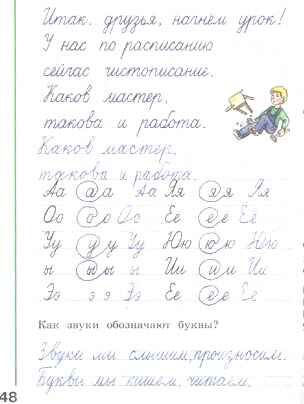 Итак, друзья, начнём урок!
У нас по расписанию
сейчас чистописание.
Каков мастер,
такова и работа.
Каков мастер,
такова и работа.
Аа а а Аа Яя я я Яя
Оо о о Оо Ее е е Её
Уу у у Уу Юю ю ю Юю
ы ы ы ы Ии и и Ии
Ээ э э Ээ Ее е е Её
Как звуки обозначают буквы?
Звуки мы слышим, произносим.
Буквы мы пишем, читаем.
48